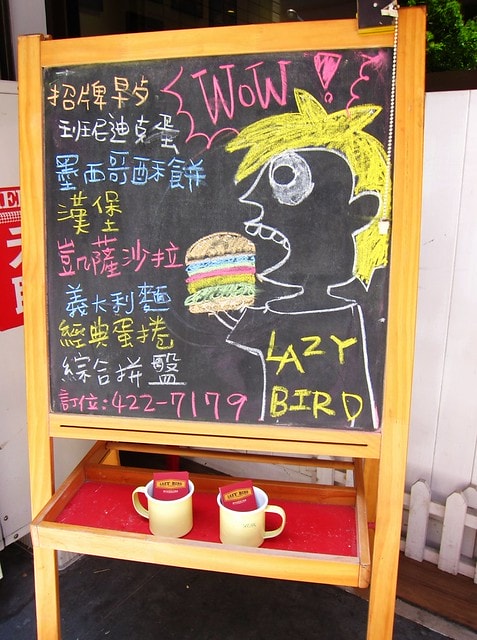 招牌早点
WOW!
班尼迪克蛋
墨西哥酥餅
漢堡
凱薩沙拉
義大利麵
經典蛋捲
綜合拼盤
訂位:422-7179
LAZY
BIRD